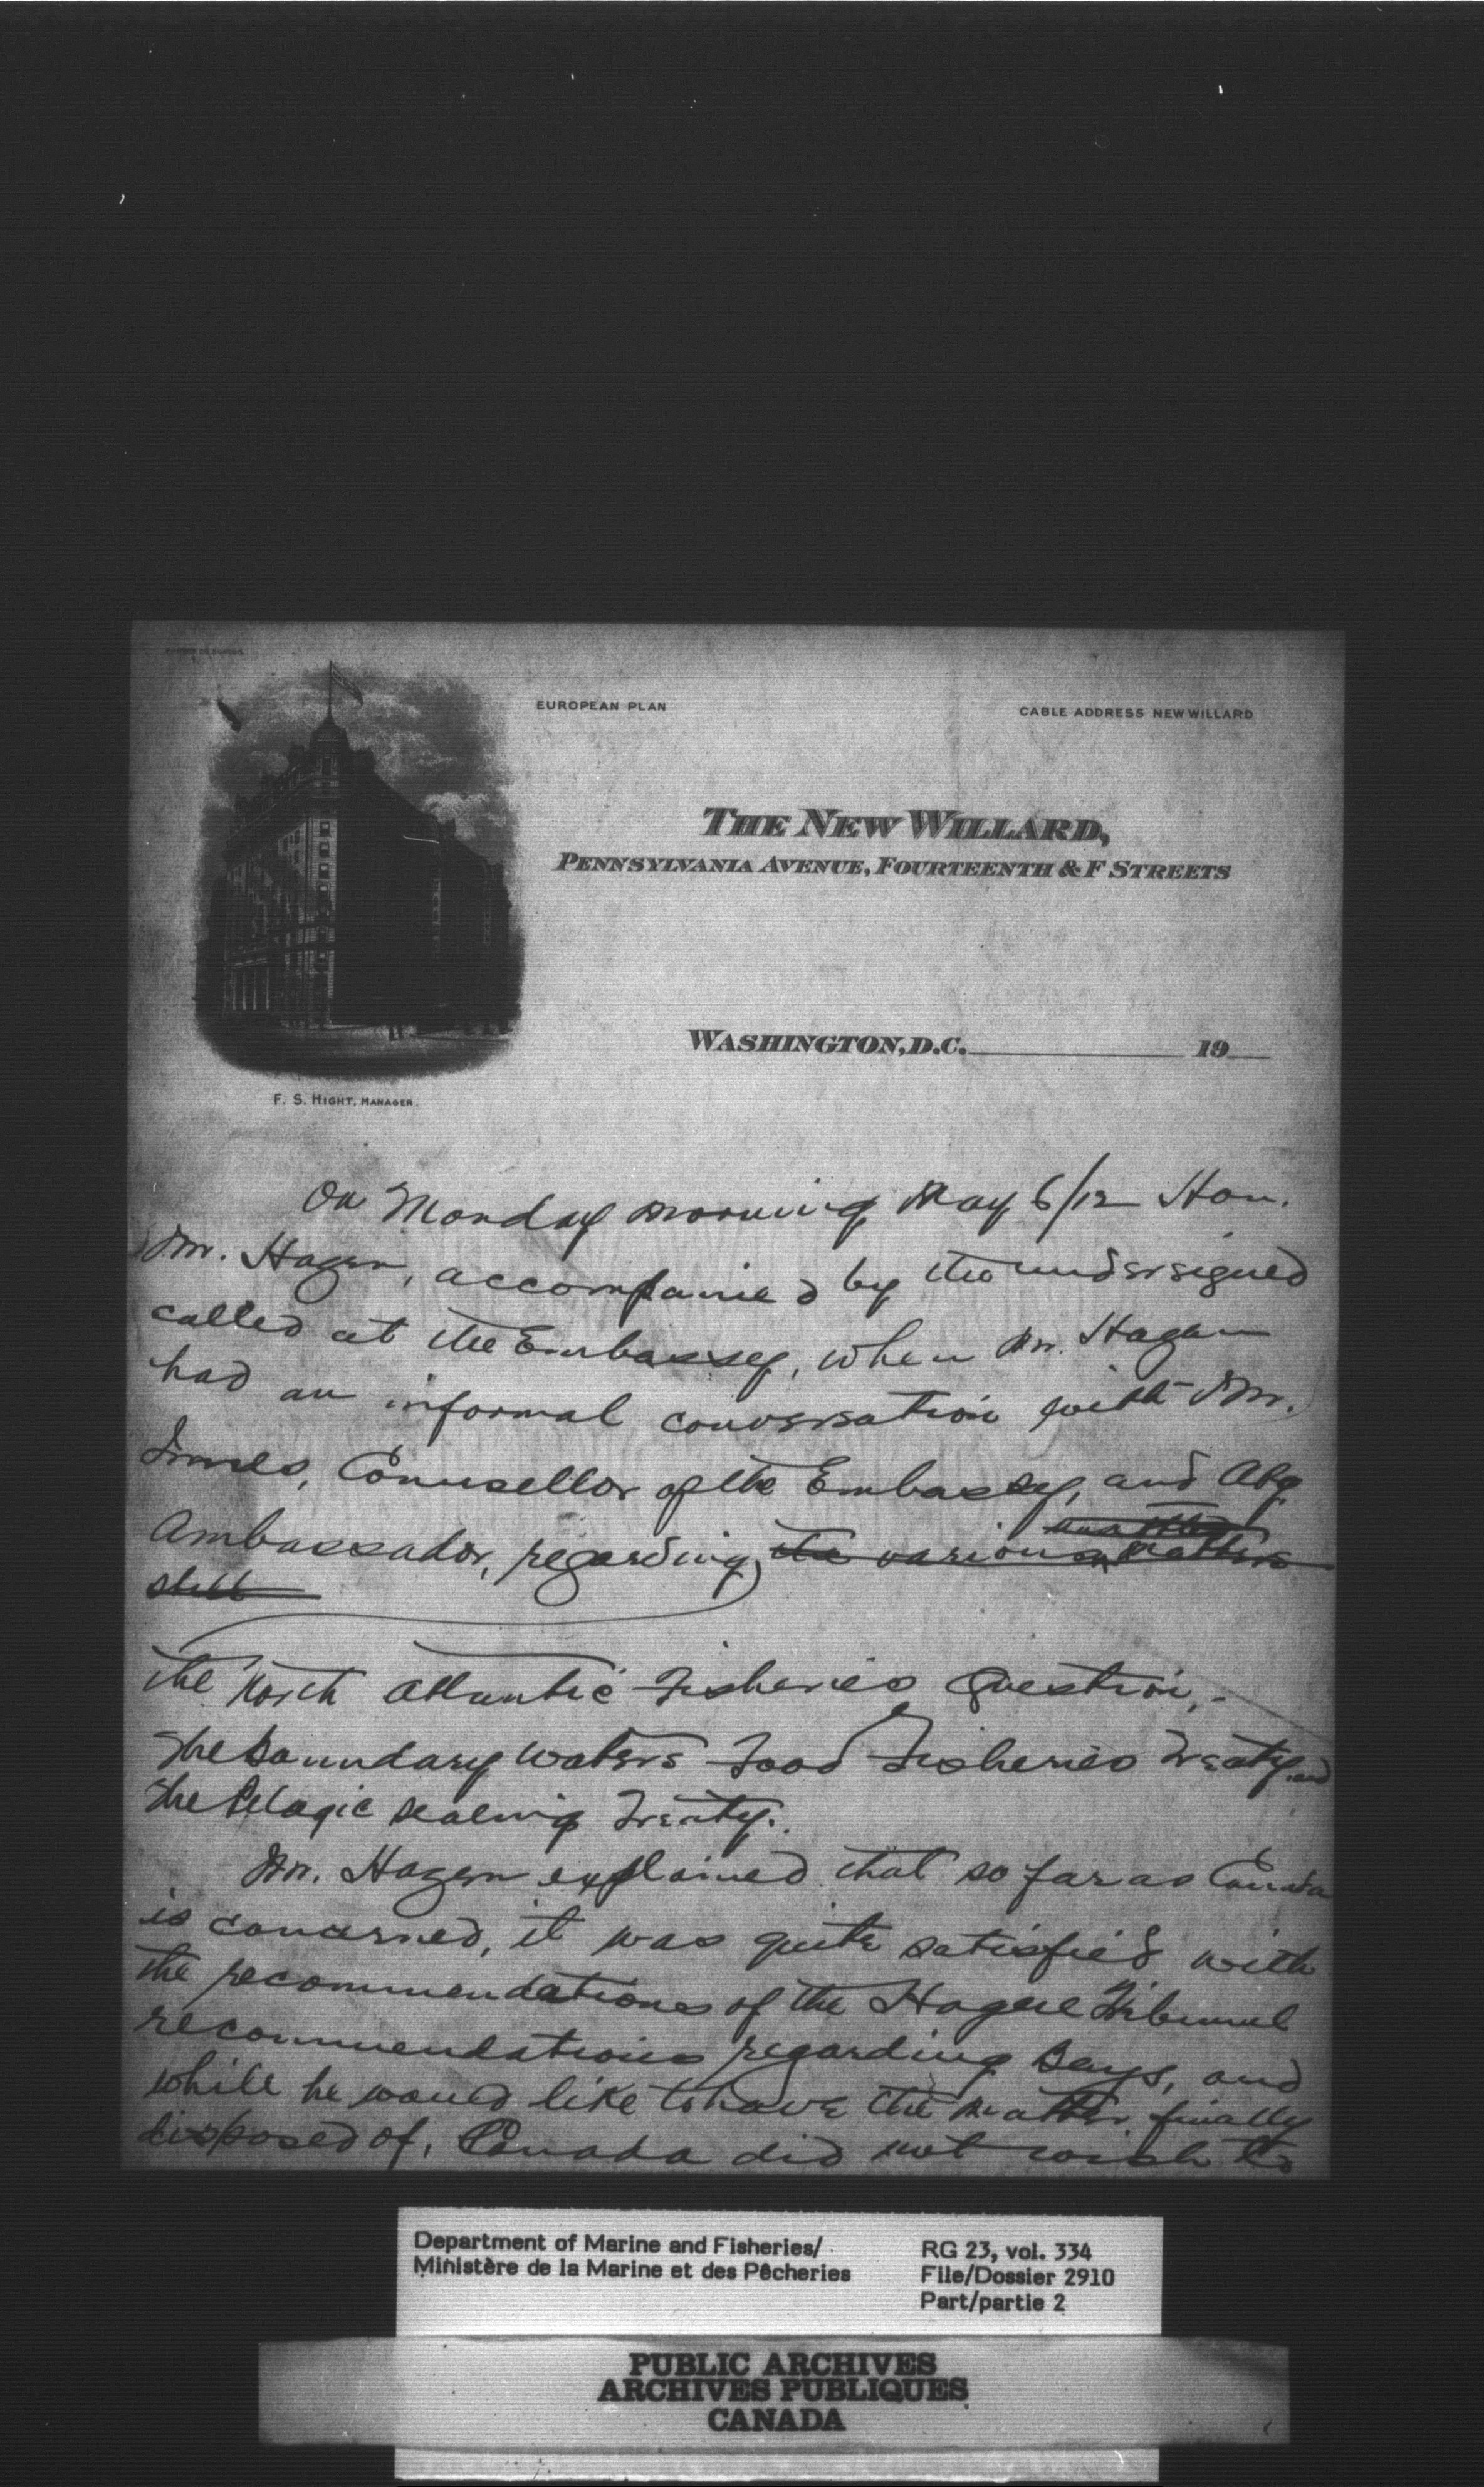 EUROPEAN PLAN
CABLE ADDRESS NEWWILLARD
THE NEW WILLARD,
PENNSYLVANIA AVENUE, FOURTEENTH & F STREETS
WASHINGTON, D.C. 19
F. S. HIGHT, MANAGER.
On Monday morning May 6/12 Hon.
Mr. Hazen, accompanied by the undersigned
called at the Embassy, when Mr. Hazen
had an informal conversation with Mr.
Innes, Counsellor of the Embassy, and Atg
Ambassador, regarding the various matters
still
the North Atlantic Fisheries Question,
The Boundary Waters Food Fisheries Treaty and
The Pelagic Sealing Treaty.
Mr. Hazen explained that so far as Canada
is concerned, it was quite satisfied with
the recommendations of the Hague Tribunal
recommendations regarding Bays, and
while he would like to have the matter finally
disposed of, Canada did not wish to
Department of Marine and Fisheries/
Ministère de la Marine et des Pêcheries
RG 23, vol. 334
File/Dossier 2910
Part/partie 2
PUBLIC ARCHIVES
ARCHIVES PUBLIQUES
CANADA